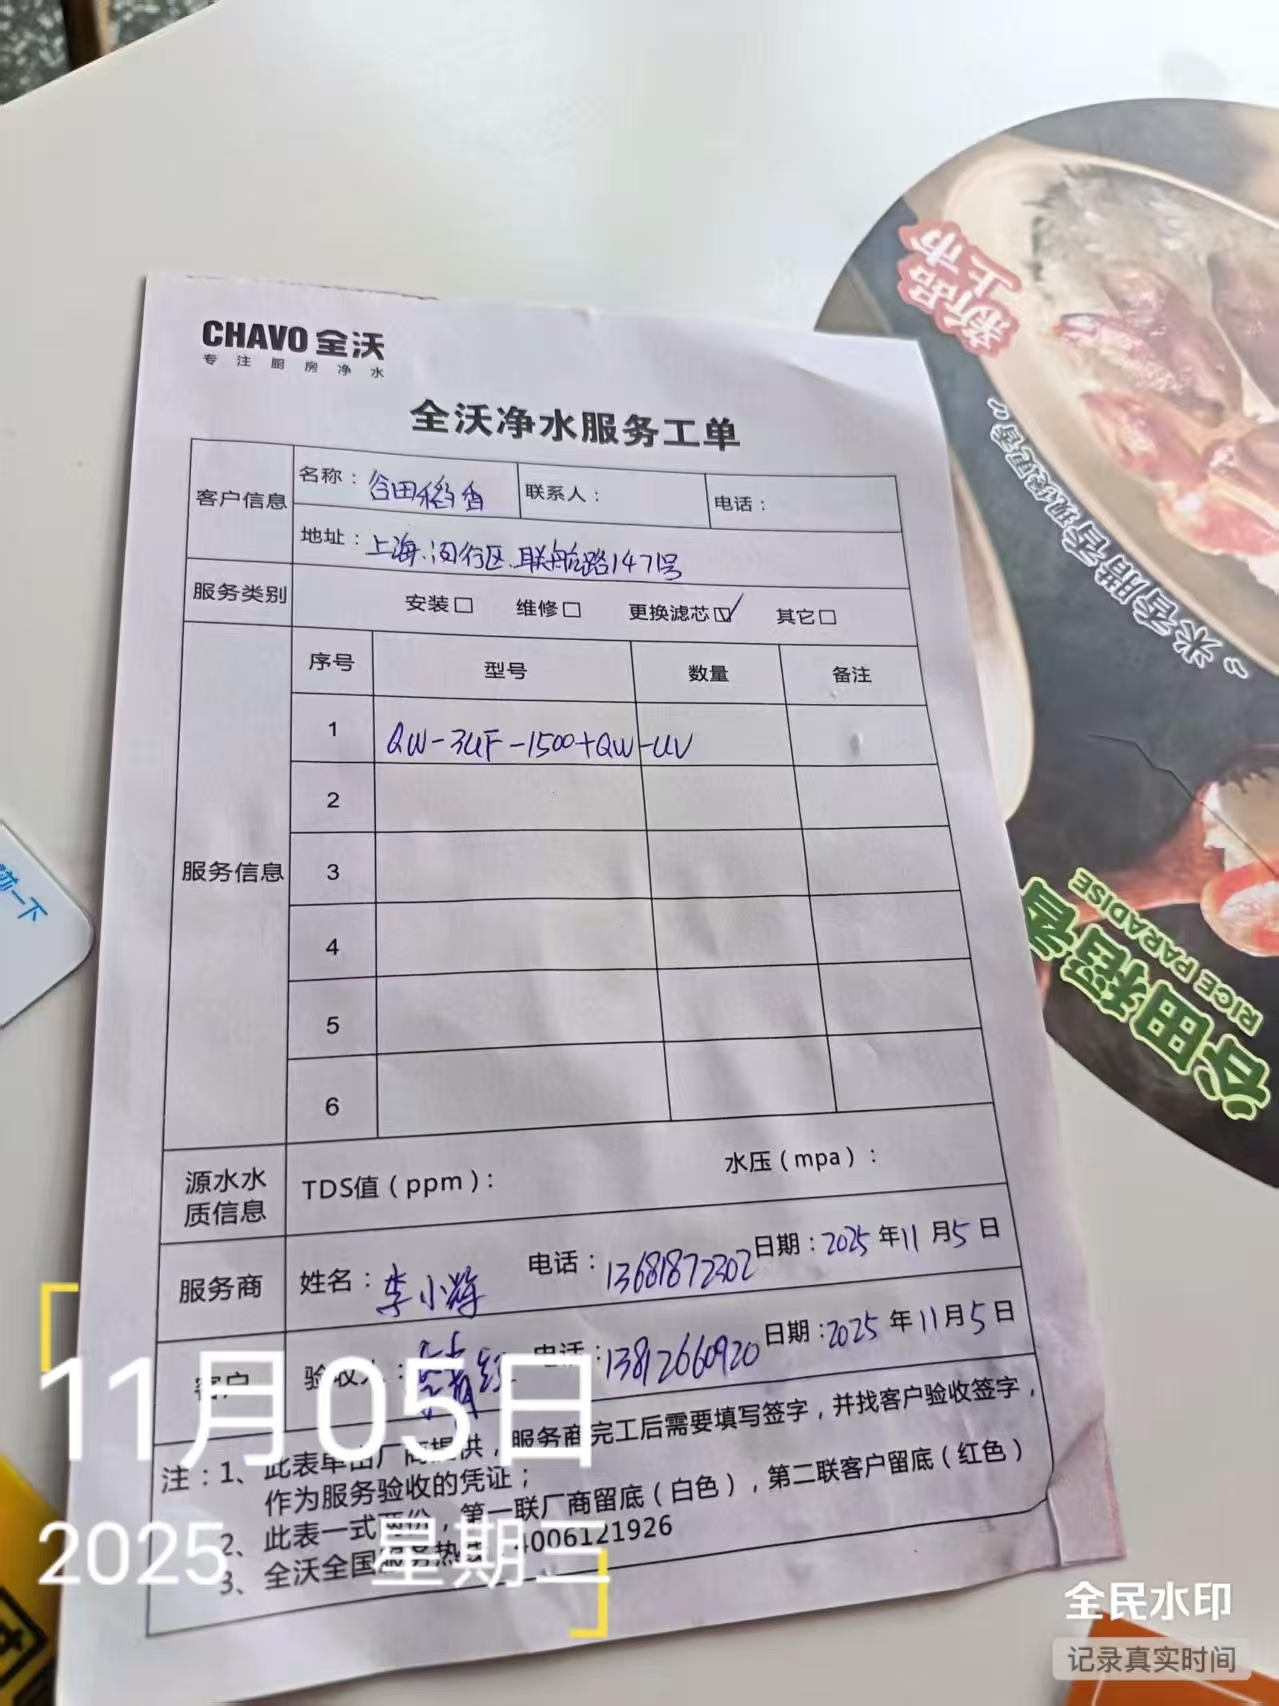 CHAVO 全沃
专注厨房净水
全沃净水服务工单
客户信息
名称：谷田稻香
联系人：
电话：
地址：上海.闵行区.联航路1471号
服务类别
安装□ 维修□ 更换滤芯☑ 其它□
服务信息
序号 型号 数量 备注
1 QW-3UF-1500+QW-UV
2
3
4
5
6
源水水质信息
TDS值（ppm）：
水压（mpa）：
服务商
姓名：李小辉 电话：13681872302 日期：2025年11月5日
客户
验收人： 电话：13812660920 日期：2025年11月5日
注：1、此表单由厂商提供，服务商完工后需要填写签字，并找客户验收签字，
作为服务验收的凭证；
2、此表一式两份，第一联厂商留底（白色），第二联客户留底（红色）
3、全沃全国服务热线：4006121926
新品上市
米香腊香现煲更香
谷田稻香
RICE PARADISE
一下
11月05日
2025 星期三
全民水印
记录真实时间